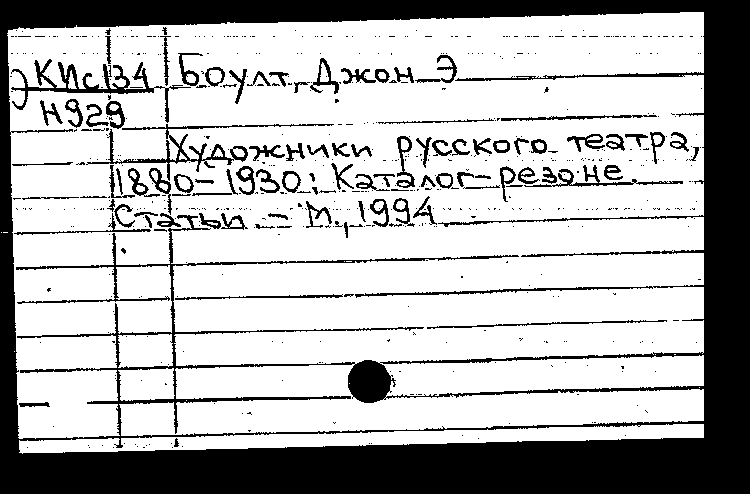 КИс134 Боулт, Джон Э
Н929
Художники русского театра,
1880-1930: Каталог-резоне.
Статьи. - М., 1994